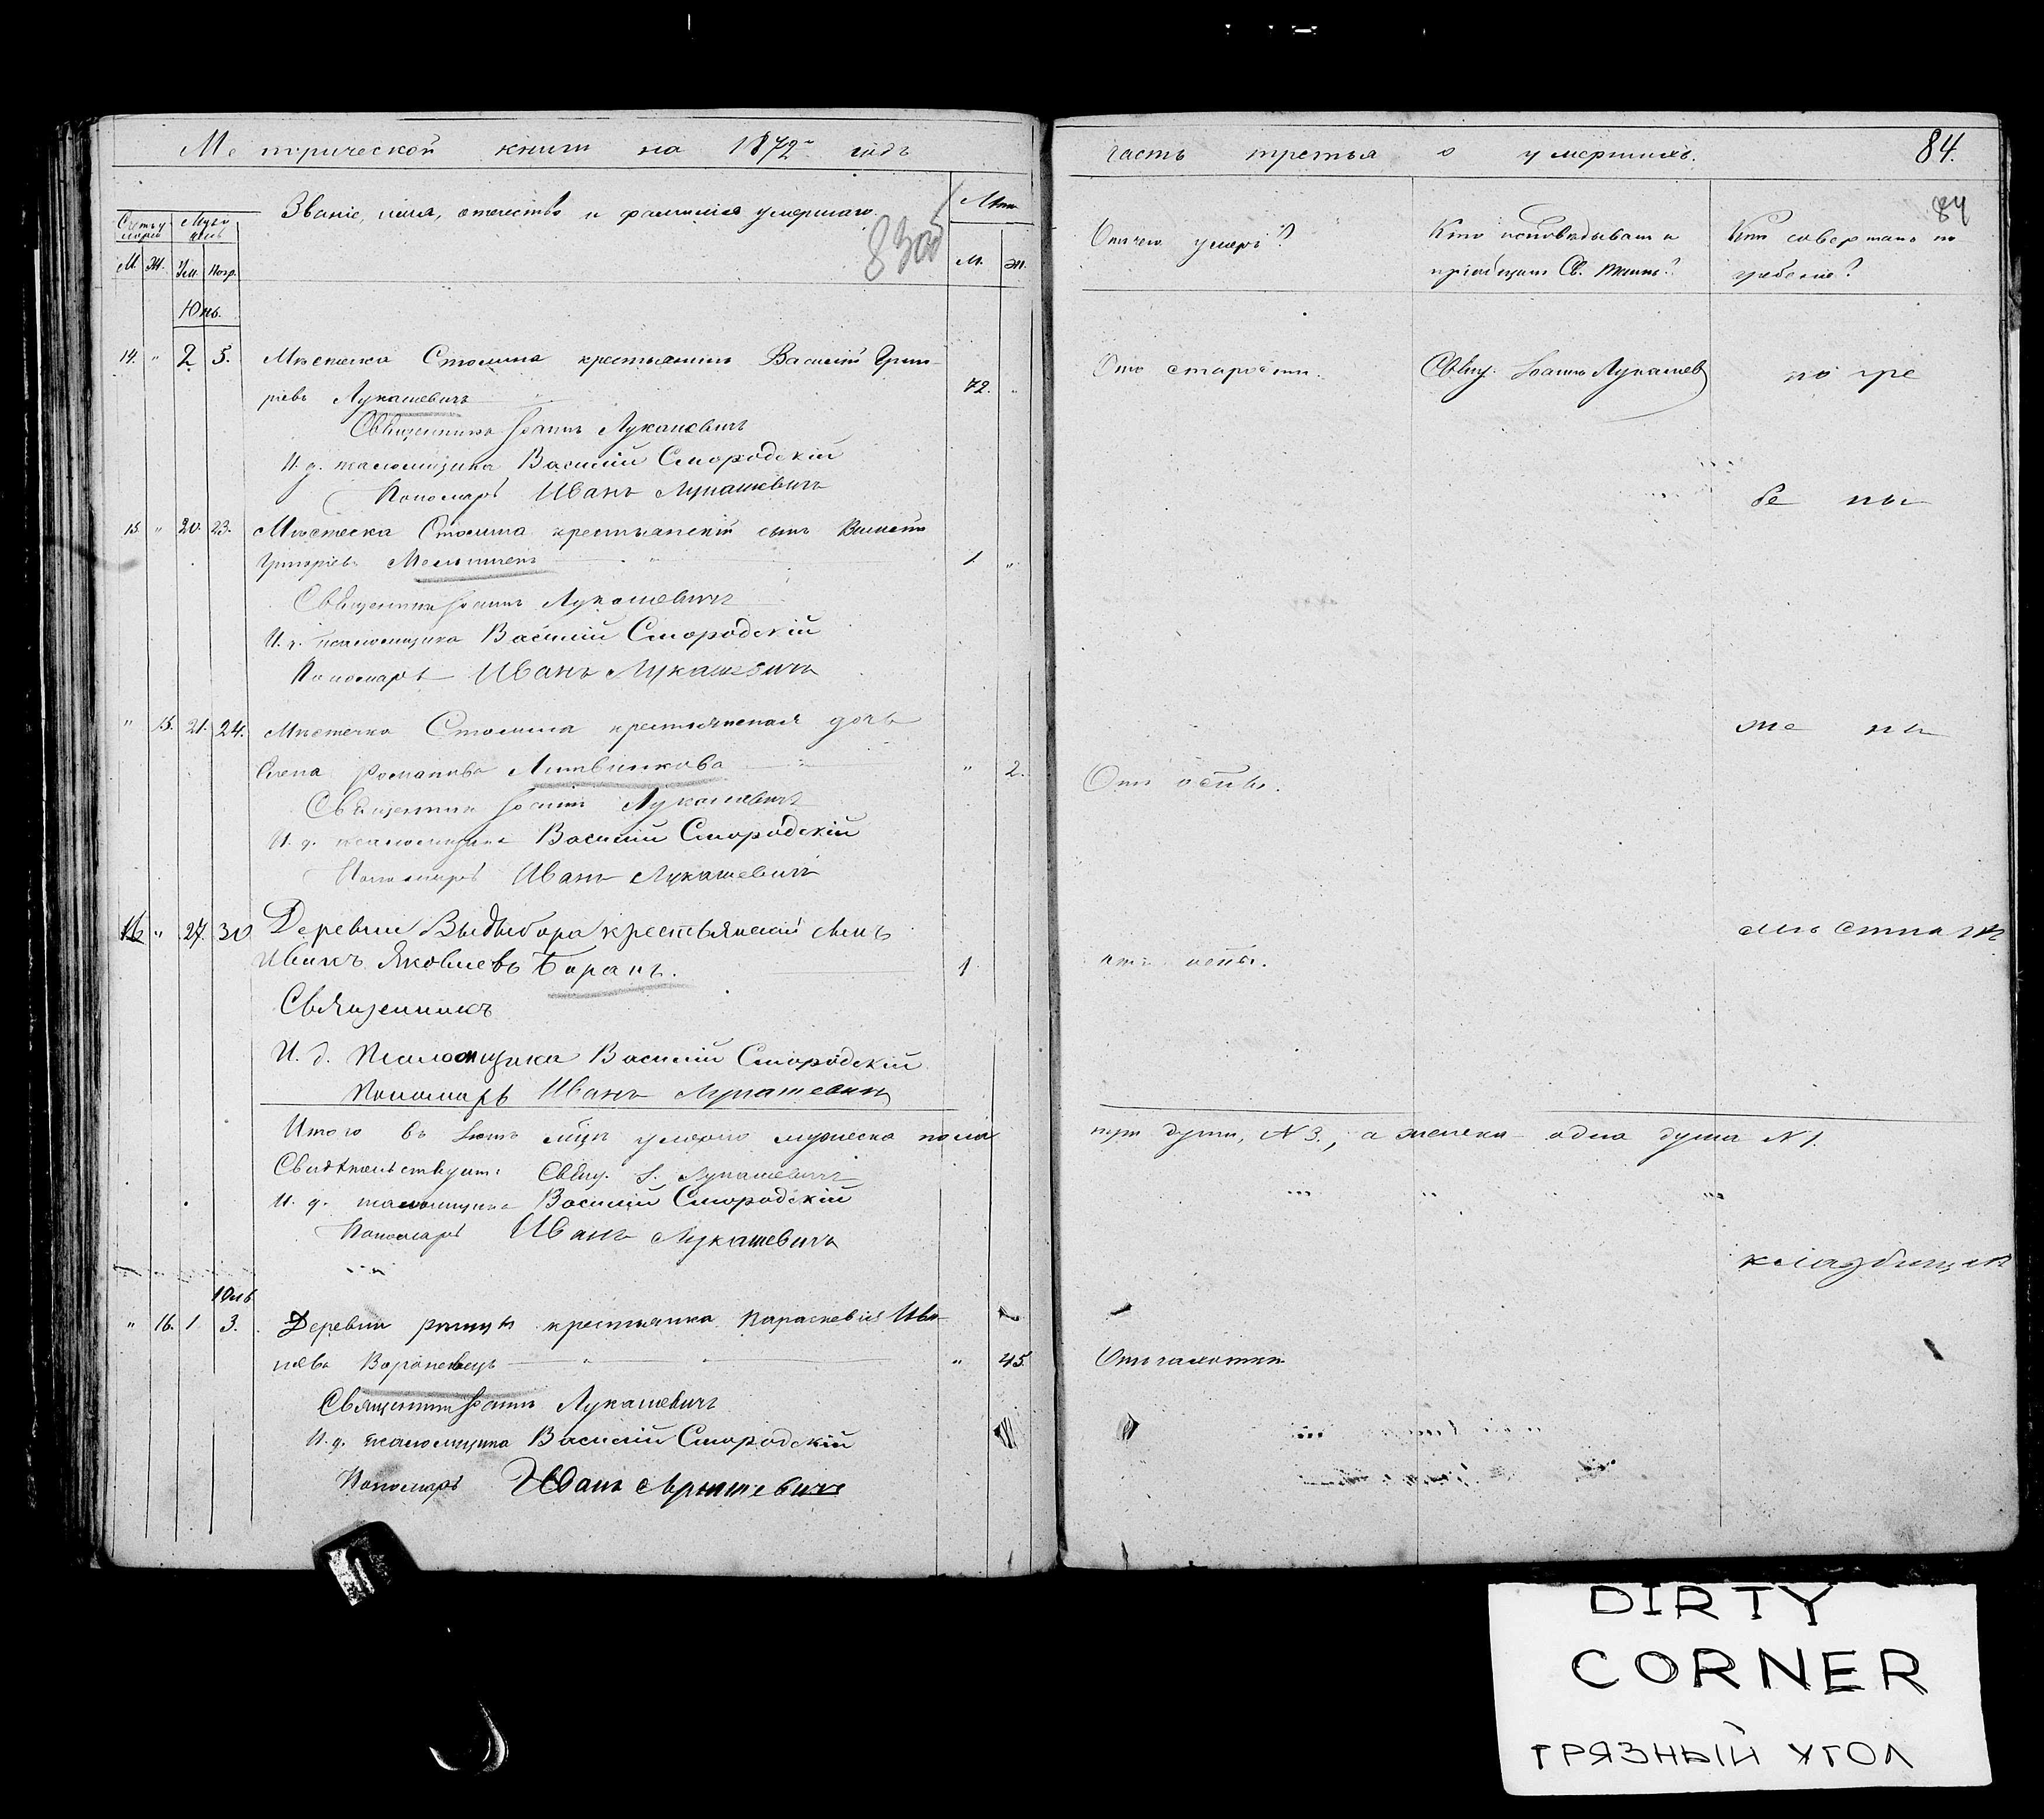 Метрической книги на 1872й годъ
часть третья о умершихъ.
84.
Счетъ умерш
Мѣс. день
Званіе, имя, отчество и фамилія умершаго.
830б
Лѣта
М. Ж. Ум. Погр.
М. Ж.
Отъ чего умеръ?
Кто исповѣдывалъ и
пріобщалъ Св. Таинъ?
Кто совершалъ по-
гребеніе?
84
Юнь.
14. " 2 5. Мѣстечка Столина крестьянинъ Василій Григо-
ріевъ Лукашевичъ 72. "
Отъ старости.
Свящ. Іоаннъ Лукашев
по гре
Священникъ Іоаннъ Лукашевичъ
И. д. псаломщика Василій Смородскій
Пономарь Иванъ Лукашевичъ
бе ны
15. " 20. 23. Мѣстечка Столина крестьянскій сынъ
Григоріевъ 1. "
Священникъ Іоаннъ Лукашевичъ
И. д. псаломщика Василій Смородскій
Пономарь Иванъ Лукашевичъ
" 15. 21. 24. Мѣстечка Столина крестьянская дочь
Елена Романова Литвинкова " 2.
Отъ оспы.
на
Священникъ Іоаннъ Лукашевичъ
И. д. псаломщика Василій Смородскій
Пономарь Иванъ Лукашевичъ
16 " 27. 30 Деревни крестьянскій сынъ
Иванъ Яковлевъ Баранъ. 1
отъ оспы.
мѣстномъ
Священникъ
И. д. Псаломщика Василій Смородскій
Пономарь Иванъ Лукашевичъ
Итого въ Іюнѣ мѣцѣ умерло мужеска пола
три души, N 3., а женска одна душа N 1.
Свидѣтельствуютъ: Свящ. І. Лукашевичъ
И. д. псаломщика Василій Смородскій
Пономарь Иванъ Лукашевичъ
кладбищѣ
Юль
" 16. 1 3. Деревни крестьянка Параскевія Ива-
нова Вороновецъ " 45.
Отъ чахотки
Священникъ Іоаннъ Лукашевичъ
И. д. псаломщика Василій Смородскій
Пономарь Иванъ Лукашевичъ
DIRTY
CORNER
ГРЯЗНЫЙ УГОЛ